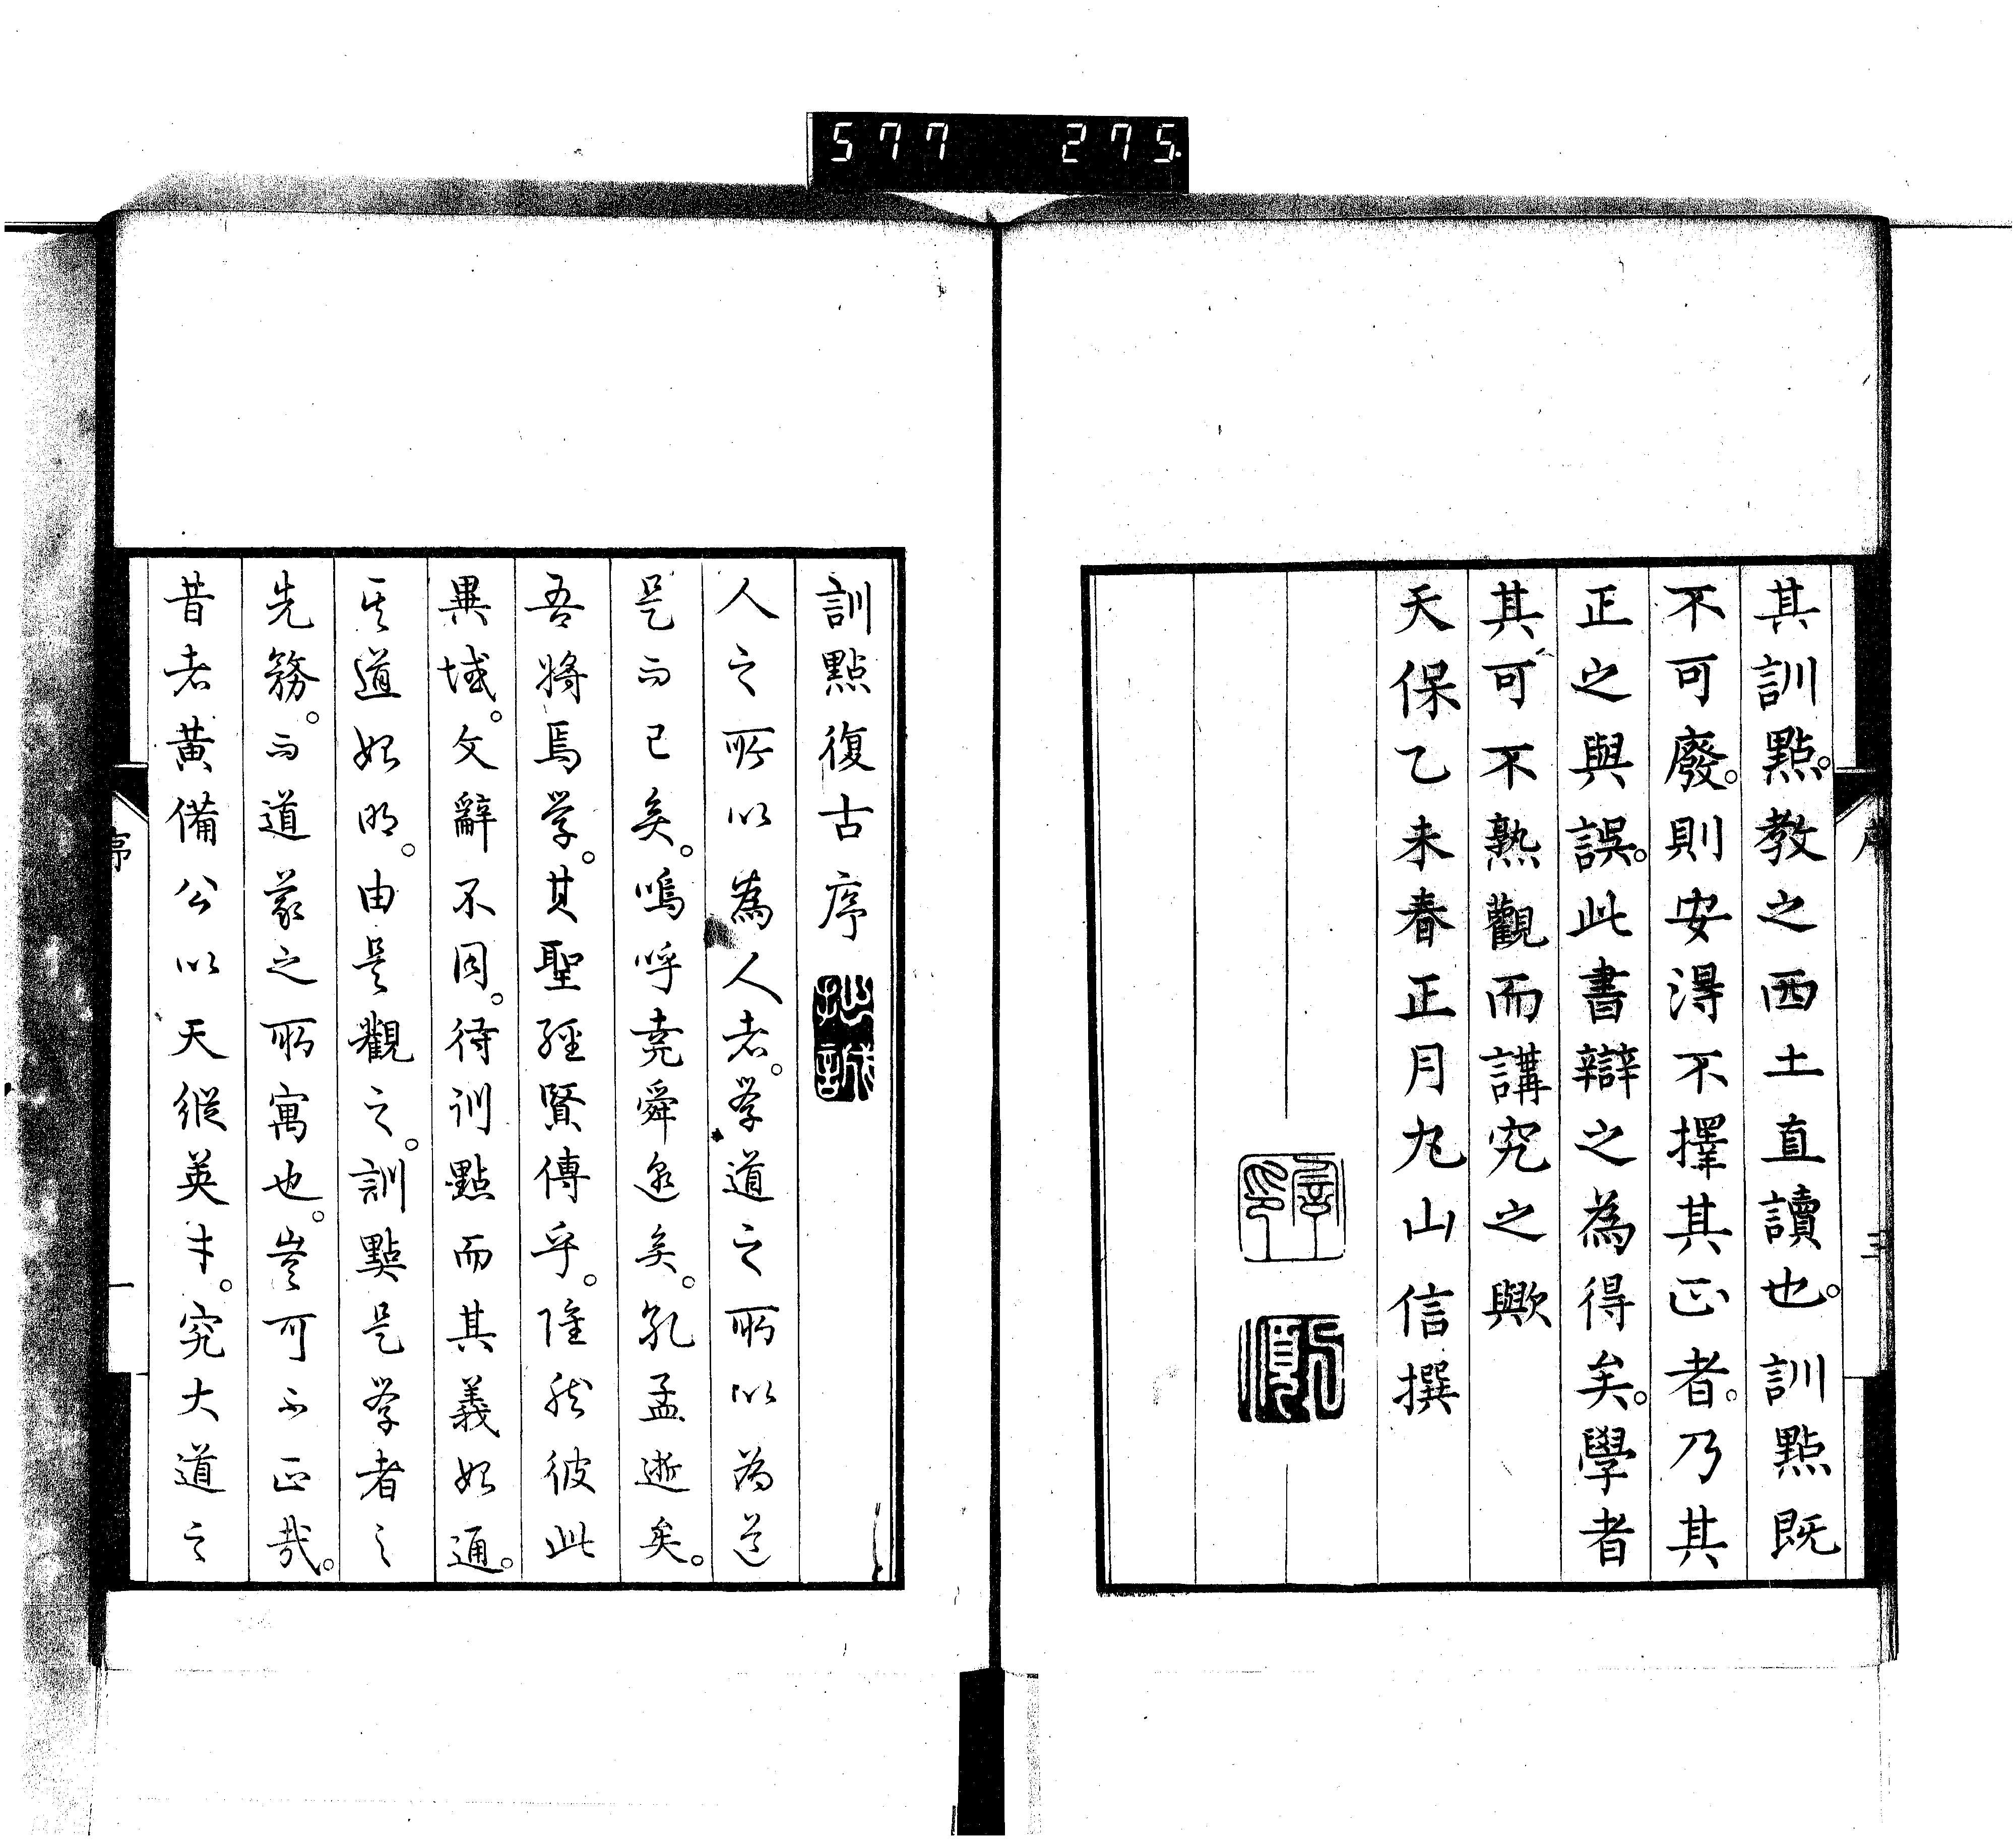 577 275
其訓點。教之西土直讀也。訓點既
不可廢。則安得不擇其正者。乃其
正之與誤。此書辯之為得矣。學者
其可不熟觀而講究之歟
天保乙未春正月丸山信撰
訓點復古序
人之所以為人者。学道之所以為道
是而已矣。嗚呼堯舜逝矣。孔孟逝矣。
吾將焉学。其聖經賢傳乎。隆然彼此
異域。文辭不同。待訓點而其義始通。
其道始明。由是觀之。訓點是学者之
先務。而道義之所寓也。豈可不正哉。
昔者黃備公以天縱英才。究大道之
序
三
序
一